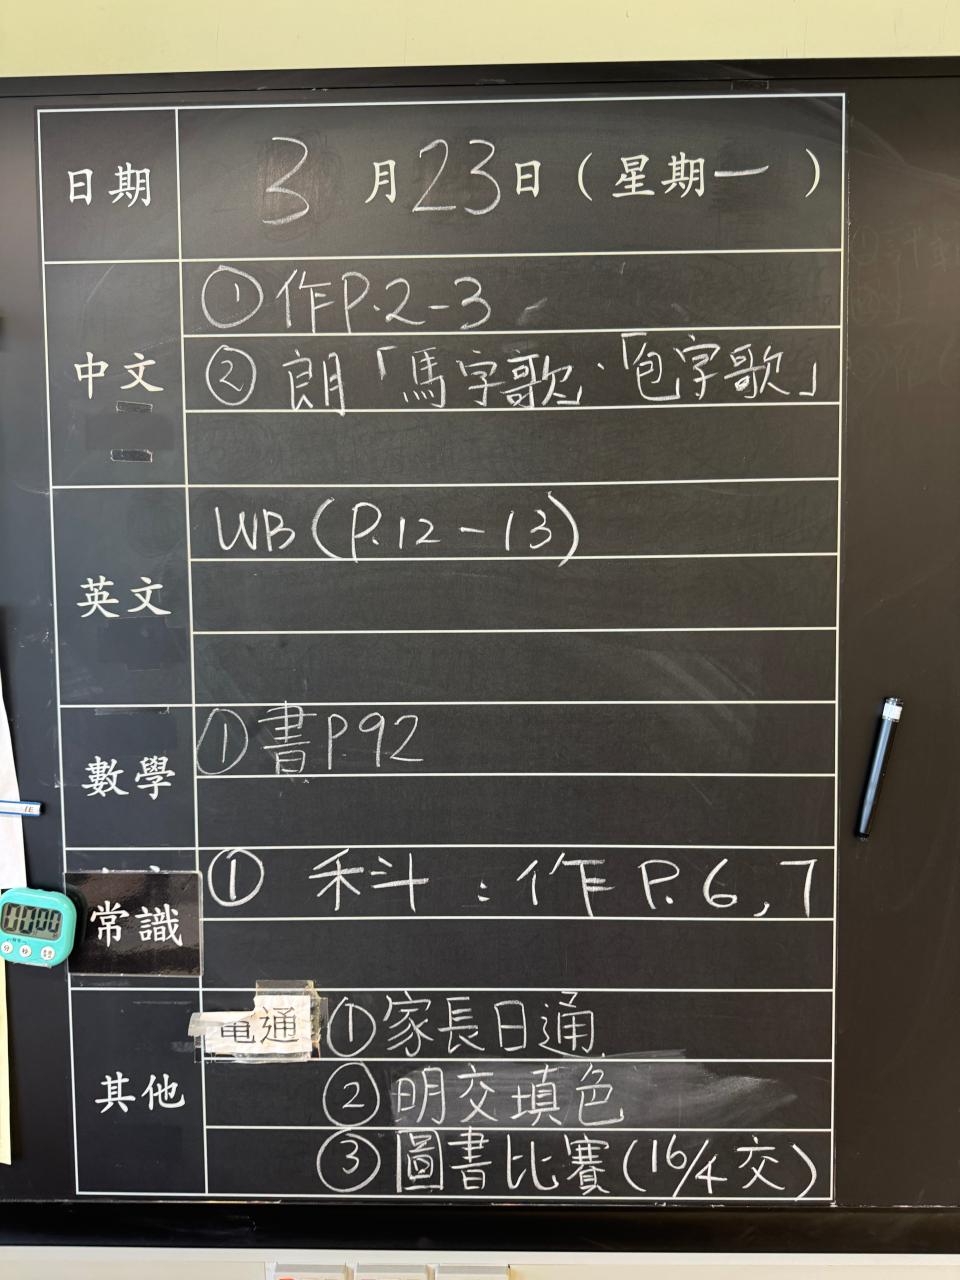 日期 3月23日（星期一）
中文
①作P.2-3
②朗「馬字歌」、「包字歌」
英文
WB(P.12-13)
數學
①書P92
常識
①禾斗：作P.6,7
其他
電通 ①家長日通
②明交填色
③圖書比賽(16/4交)
00:00